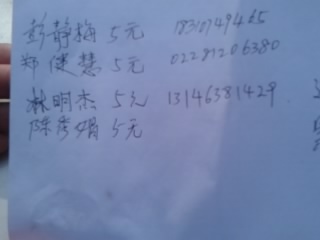 彭静梅 5元 18310749465
郑健慧 5元 02281206380
林明杰 5元 13146381429
陈彦娟 5元